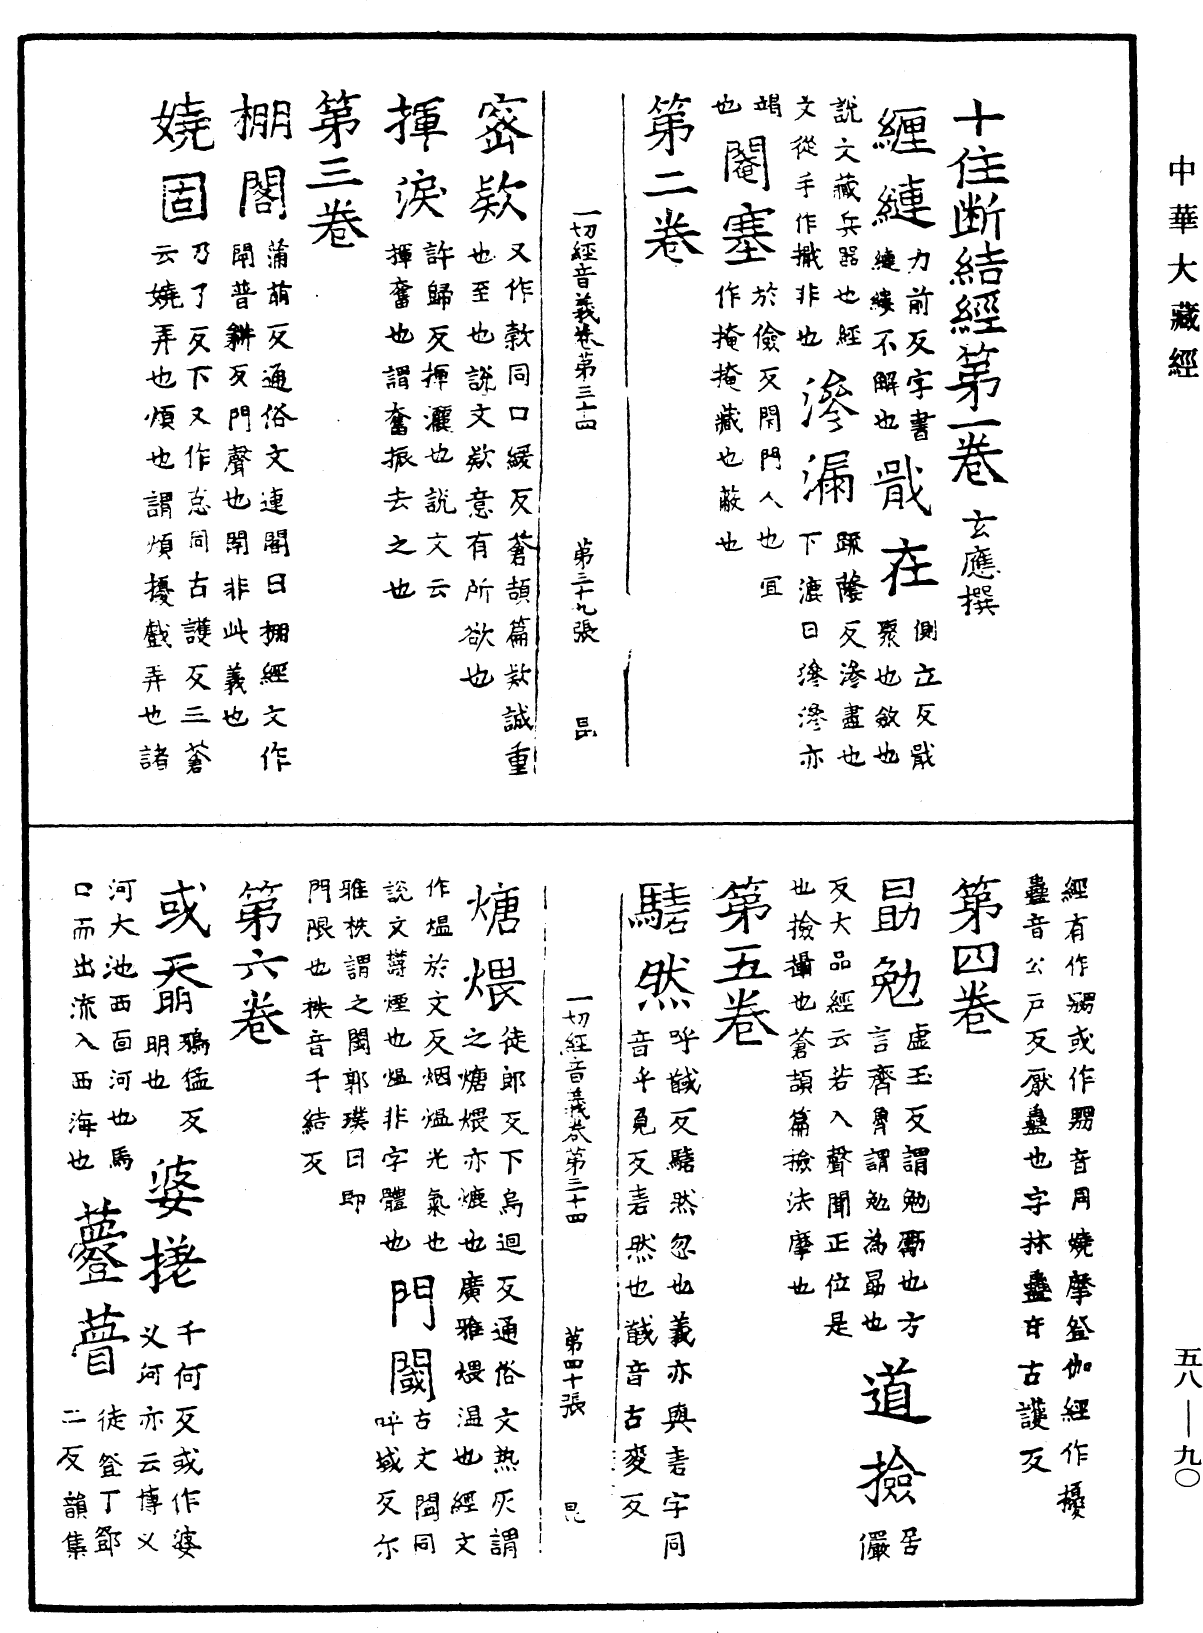 中華大藏經
十住断結經第一卷 玄應撰
纏縺 力前反字書
縺縷不解也 戢在 側立反戢
聚也斂也
說文藏兵器也經
文從手作撠非也 滲漏 踈蔭反滲盡也
下漉曰滲滲亦
竭
也 閹塞 於儉反閉門人也宜
作掩掩藏也蔽也
第二卷
一切經音義卷第三十四 第三十九張 昆
密欵 又作款同口緩反蒼頡篇欵誠重
也至也說文欵意有所欲也
揮淚 許歸反揮灑也說文云
揮奮也謂奮振去之也
第三卷
棚閣 蒲萌反通俗文連閣曰棚經文作
閛普耕反門聲也閛非此義也
嬈固 乃了反下又作怘同古護反三蒼
云嬈弄也煩也謂煩擾戲弄也諸
經有作嫋或作嬲音同嬈摩登伽經作擾
蠱音公戶反厭蠱也字林蠱音古護反
第四卷
勗勉 虛玉反謂勉勵也方
言齊魯謂勉為勗也 道撿 居
儼
反大品經云若入聲聞正位是
也撿攝也蒼頡篇撿法摩也
第五卷
騞然 呼馘反騞然忽也義亦與砉字同
音乎覓反砉然也馘音古麥反
一切經音義卷第三十四 第四十張 昆
煻煨 徒郎反下烏迴反通俗文热灰謂
之煻煨亦熝也廣雅煨温也經文
作熅於文反烟熅光氣也
說文蔚煙也熅非字體也 門閾 古文閾同
呼域反尔
雅柣謂之閾郭璞曰即
門限也柣音千結反
第六卷
或明 鴉猛反
明也 婆搓 千何反或作婆
义河亦云博义
河大池西面河也馬
口而出流入西海也 薹瞢 徒登丁鄧
二反韻集
五八——九〇